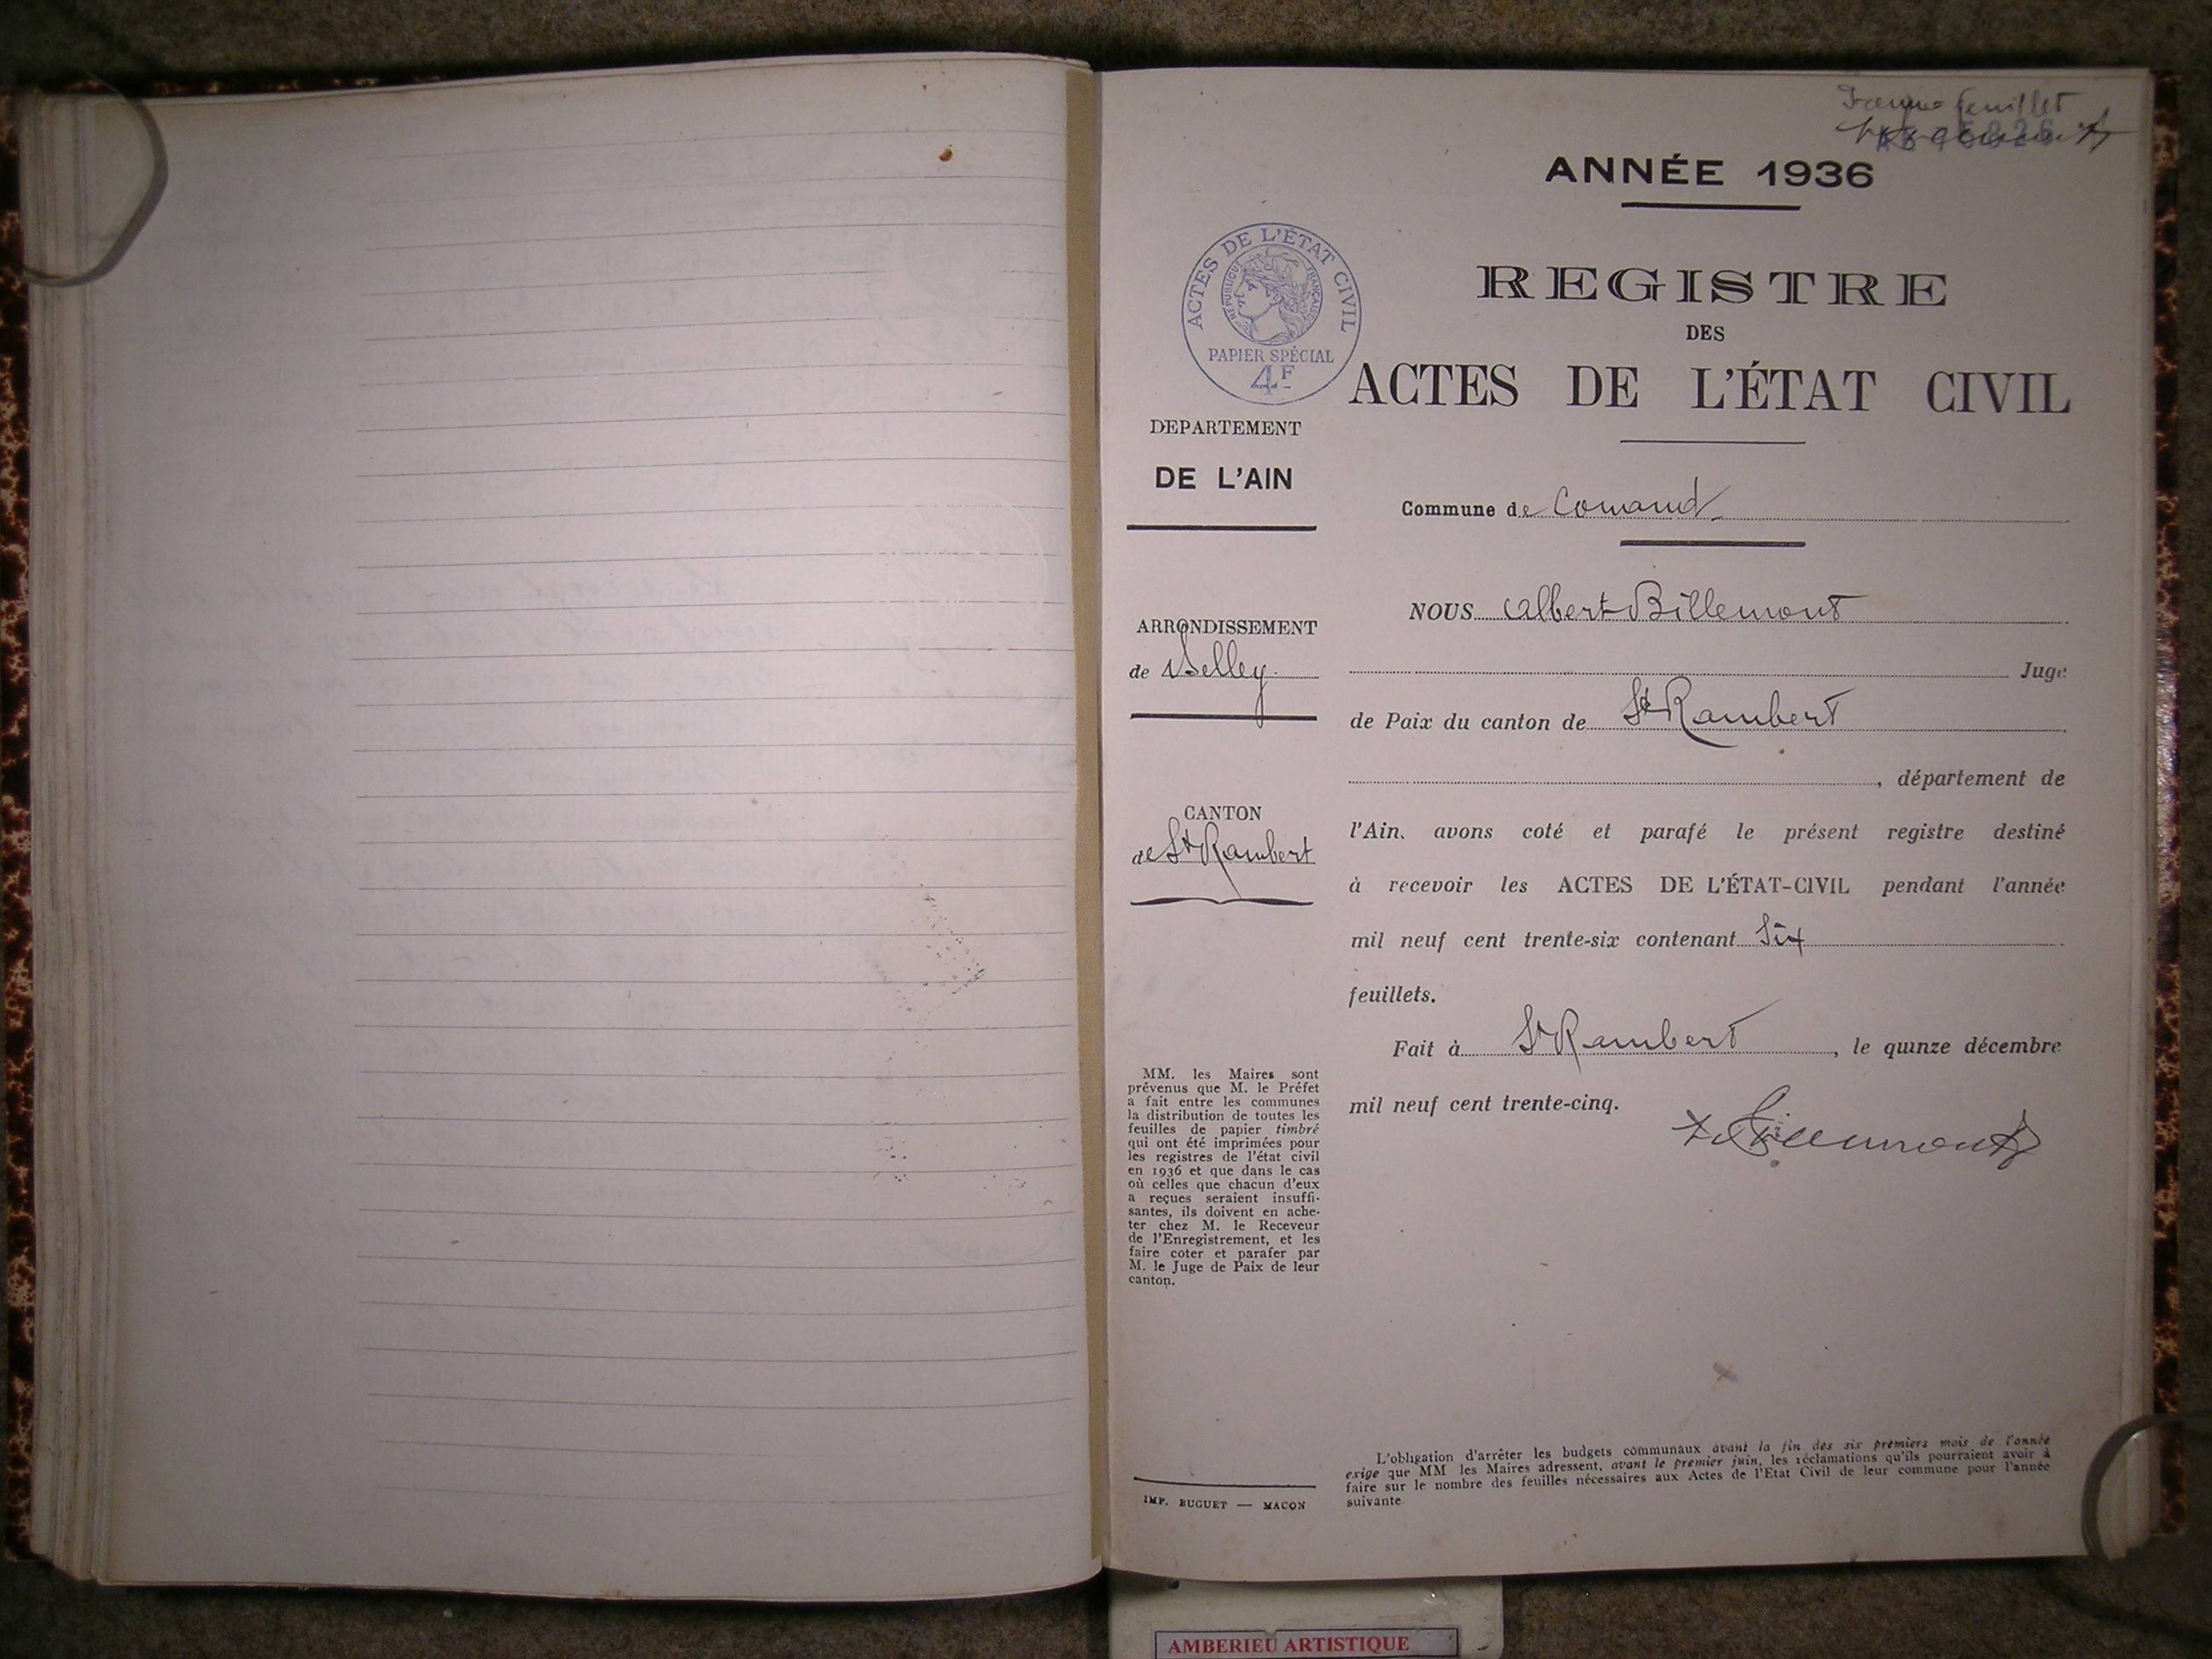 feuillet
ANNÉE 1936
ACTES DE L'ÉTAT CIVIL
RÉPUBLIQUE FRANÇAISE
PAPIER SPÉCIAL
4F
REGISTRE
DES
ACTES DE L'ÉTAT CIVIL
DEPARTEMENT
DE L'AIN
Commune de Conand
ARRONDISSEMENT
de Belley
CANTON
de St Rambert
NOUS Albert Billemont
Juge
de Paix du canton de St Rambert
, département de
l'Ain. avons coté et parafé le présent registre destiné
à recevoir les ACTES DE L'ÉTAT-CIVIL pendant l'année
mil neuf cent trente-six contenant Six
feuillets.
Fait à St Rambert, le quinze décembre
mil neuf cent trente-cinq.
Billemont
MM. les Maires sont
prévenus que M. le Préfet
a fait entre les communes
la distribution de toutes les
feuilles de papier timbré
qui ont été imprimées pour
les registres de l'état civil
en 1936 et que dans le cas
où celles que chacun d'eux
a reçues seraient insuffi-
santes, ils doivent en ache-
ter chez M. le Receveur
de l'Enregistrement, et les
faire coter et parafer par
M. le Juge de Paix de leur
canton.
IMP. BUGUET — MACON
L'obligation d'arrêter les budgets communaux avant la fin des six premiers mois de l'année
exige que MM les Maires adressent, avant le premier juin, les réclamations qu'ils pourraient avoir à
faire sur le nombre des feuilles nécessaires aux Actes de l'Etat Civil de leur commune pour l'année
suivante
AMBERIEU ARTISTIQUE